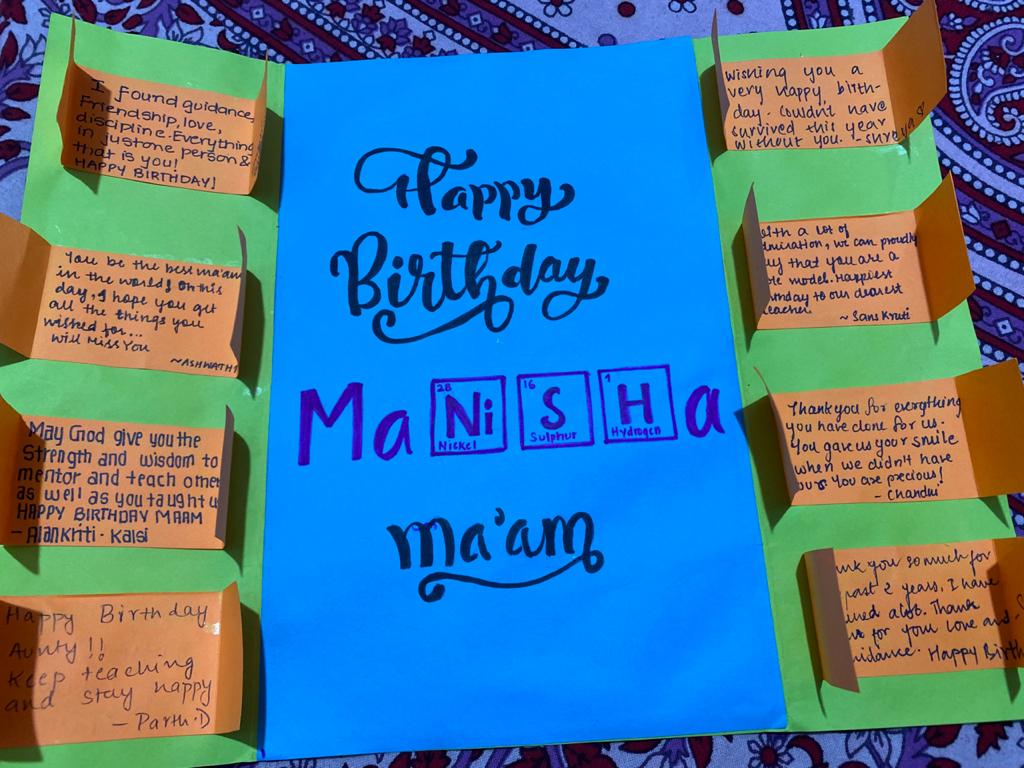 I found guidance,
Friendship, love,
discipline. Everything
in just one person &
that is you!
HAPPY BIRTHDAY!
You be the best ma'am
in the world! On this
day, I hope you get
all the things you
wished for...
will Miss You
~ASHWATHI
May God give you the
Strength and wisdom to
mentor and teach other
as well as you taught
HAPPY BIRTHDAY MAAM
- Alankriti · Kalsi
Happy Birthday
Aunty!!
Keep teaching
and stay happy
- Parth·D
Happy
Birthday
28 16 1
Ma Ni S H a
Nickel Sulphur Hydrogen
ma'am
Wishing you a
very happy birth-
day. Couldn't have
survived this year
without you. - Shreya
a lot of
we can proudly
that you are a
model. Happiest
to our dearest
~ Sanskruti
Thankyou for everything
you have done for us.
You gave us your smile
when we didn't have
ours You are precious!
- Chandni
you so much for
past 2 years, I have
alot. Thank
for your love and
Happy